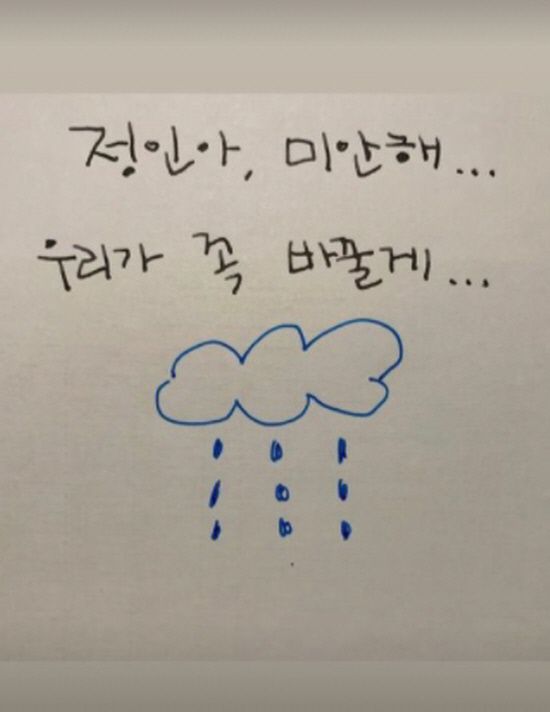 정인아, 미안해...
우리가 꼭 바꿀게...